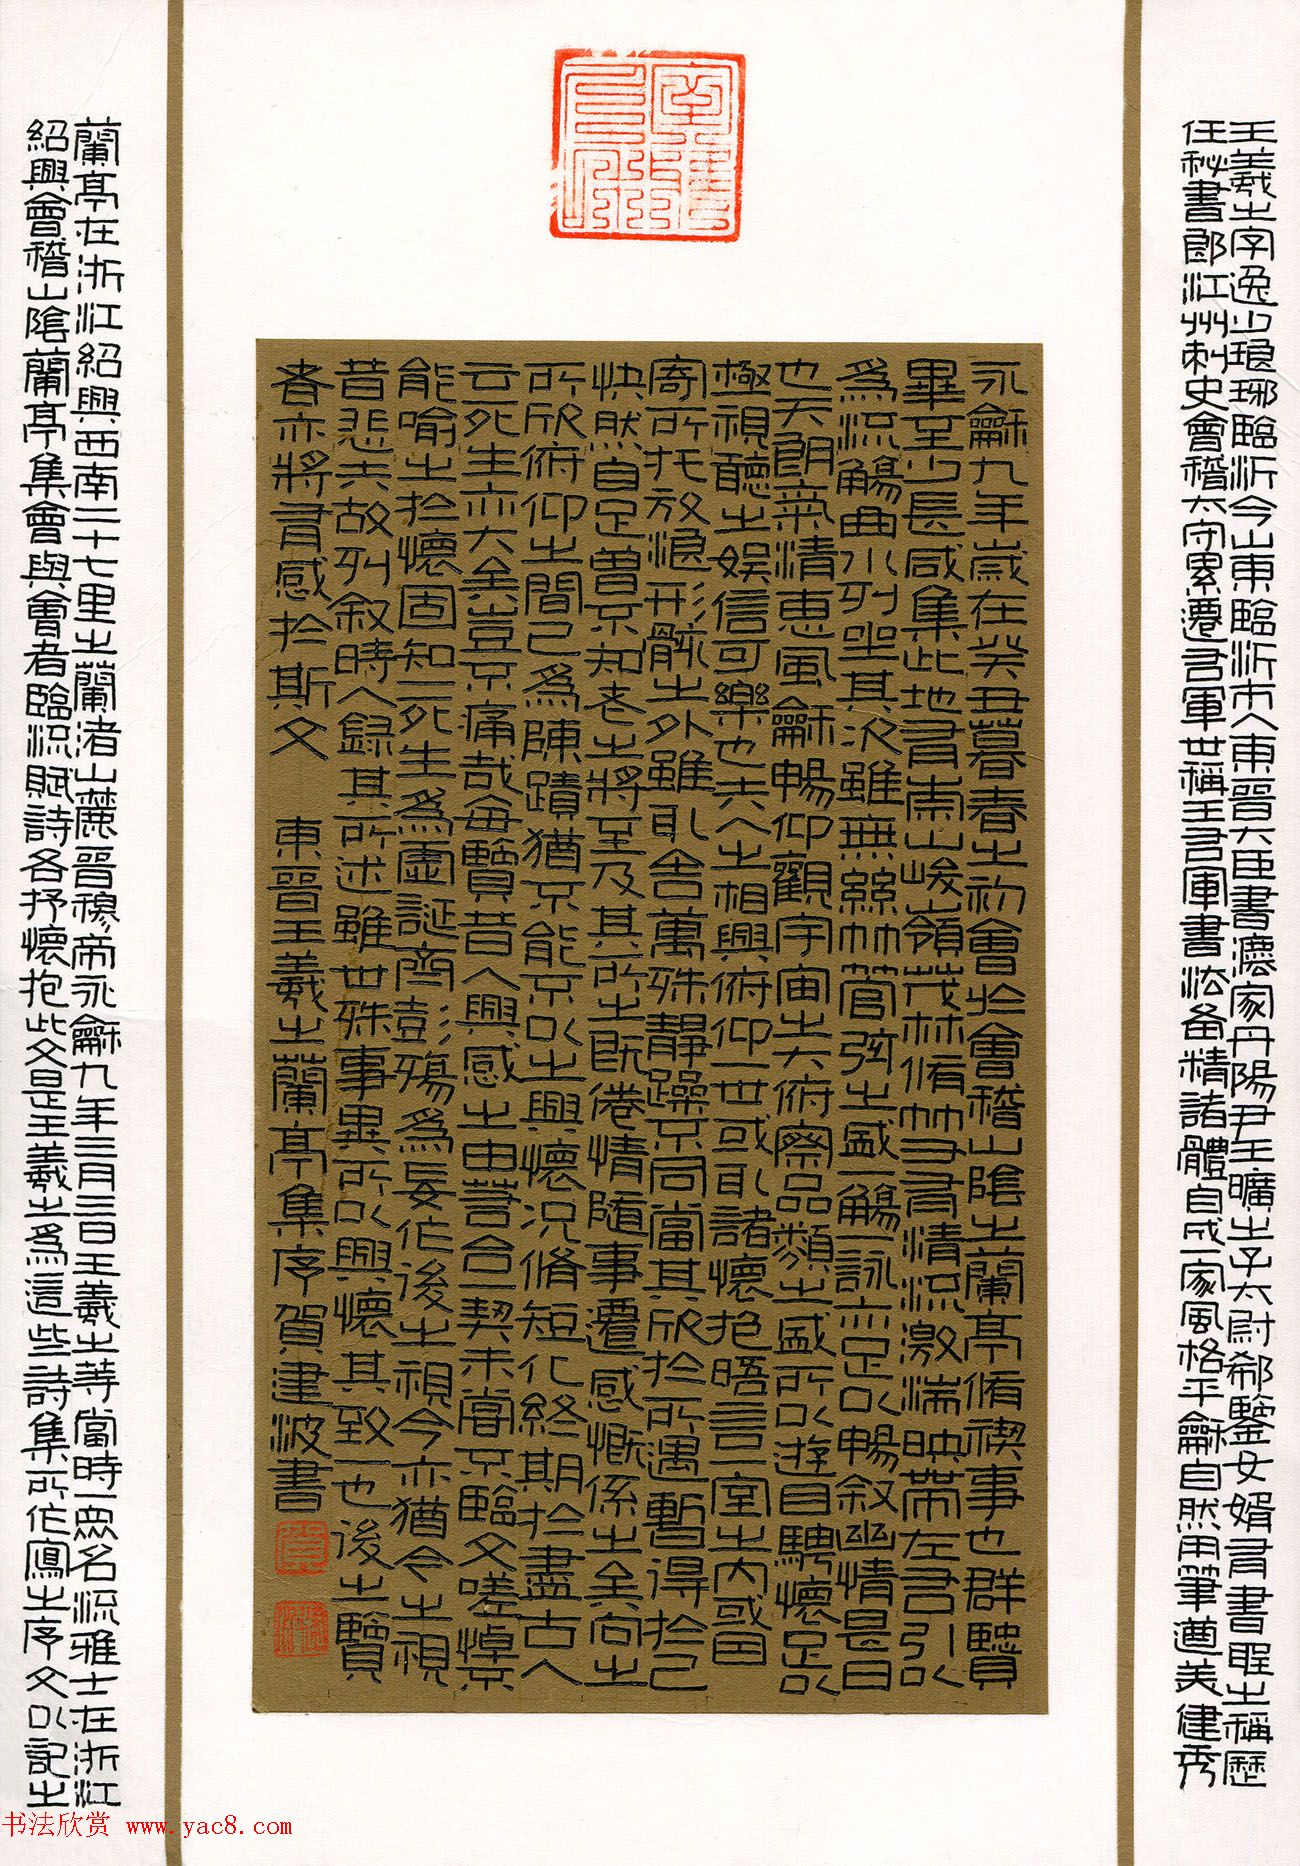 王羲之字逸少琅琊臨沂今山東臨沂市人東晉大臣書灋家丹陽尹王曠之子太尉郗鑒女婿有書聖之稱歷
任秘書郎江州刺史會稽太守累遷右軍世稱王右軍書法备精諸體自成一家風格平龢自然用筆遒美健秀
永龢九年歲在癸丑暮春之初會於會稽山陰之蘭亭脩禊事也群賢
畢至少長咸集此地有崇山峻嶺茂林脩竹又有清流激湍映帶左右引以
為流觴曲水列坐其次雖無絲竹管弦之盛一觴一詠亦足以暢叙幽情是日
也天朗氣清惠風龢暢仰觀宇宙之大俯察品類之盛所以遊目騁懷足以
極視聽之娛信可樂也夫人之相與俯仰一世或取諸懷抱晤言一室之內或因
寄所托放浪形骸之外雖取舍萬殊靜躁不同當其欣於所遇暫得於己
快然自足曾不知老之將至及其所之既倦情隨事遷感慨係之矣向之
所欣俯仰之間已為陳蹟猶不能不以之興懷況脩短化終期於盡古人
云死生亦大矣豈不痛哉每覽昔人興感之由若合一契未嘗不臨文嗟悼不
能喻之於懷固知一死生為虛誕齊彭殤為妄作後之視今亦猶今之視
昔悲夫故列叙時人錄其所述雖世殊事異所以興懷其致一也後之覽
者亦將有感於斯文 東晉王羲之蘭亭集序賀建波書
蘭亭在浙江紹興西南二十七里之蘭渚山麓晉穆帝永龢九年三月三日王羲之等當時一眾名流雅士在浙江
紹興會稽山陰蘭亭集會與會者臨流賦詩各抒懷抱此文是王羲之為這些詩集所作寫之序文以記之
书法欣赏 www.yac8.com